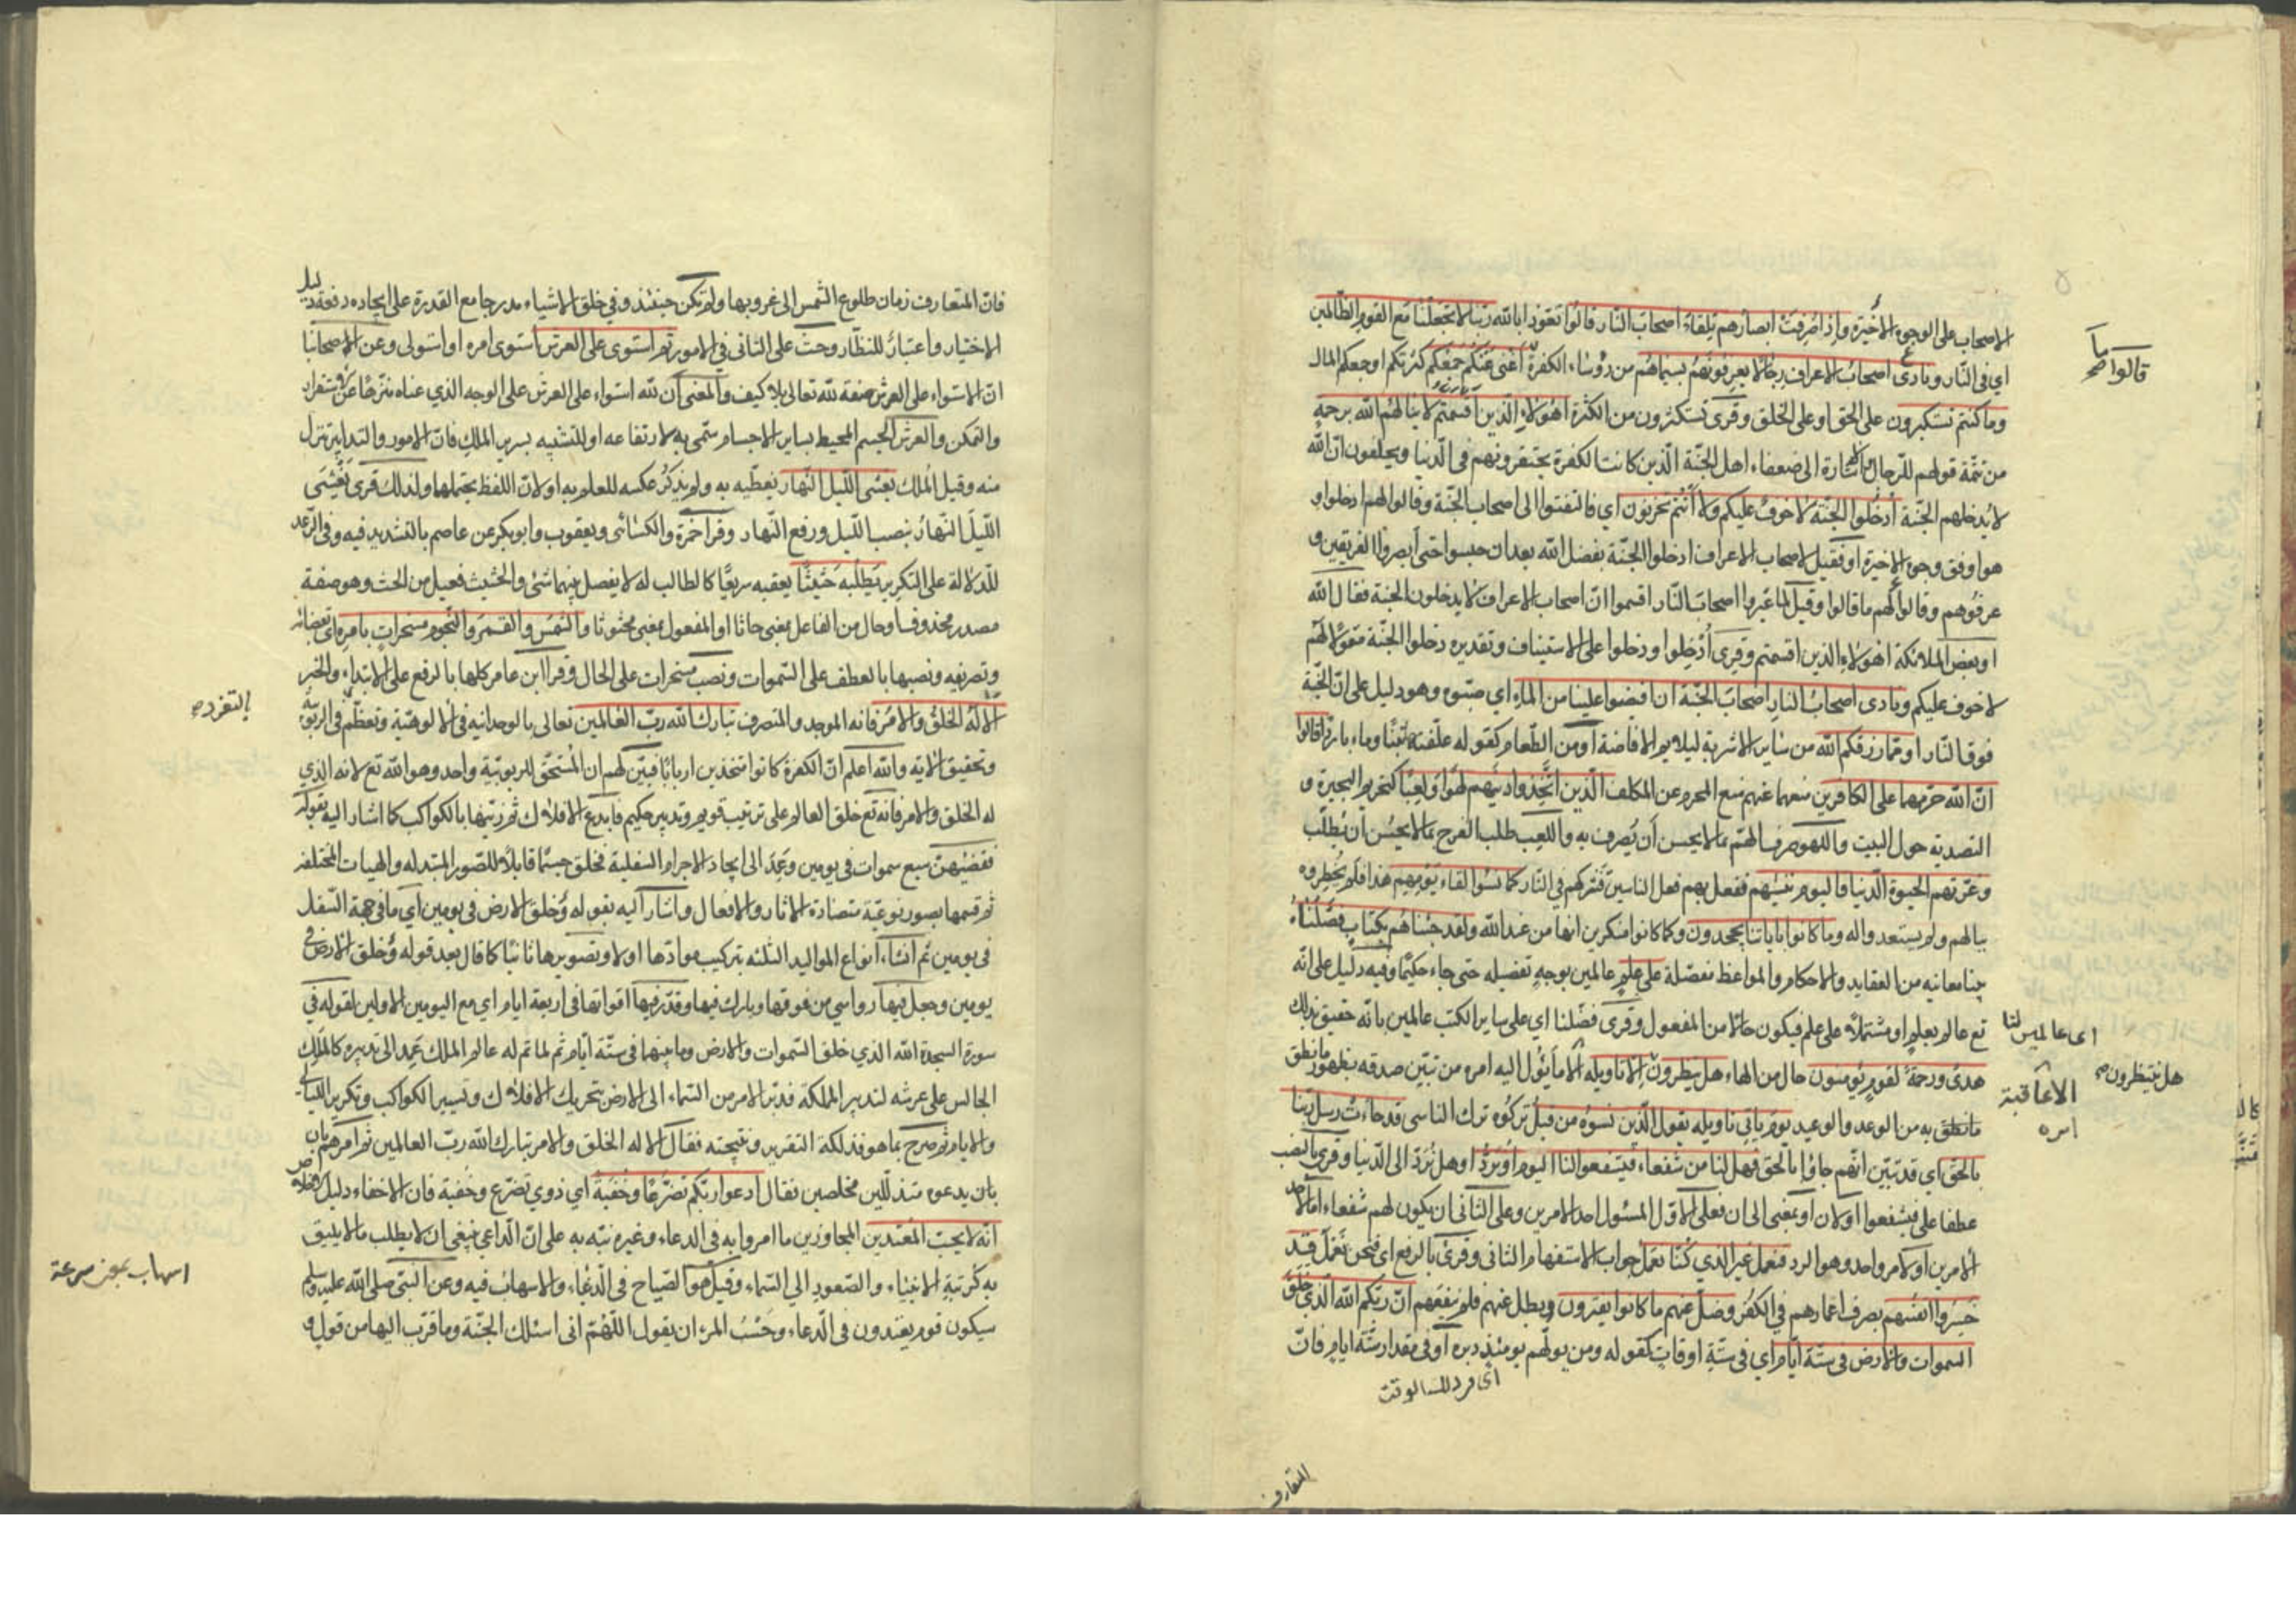 الاصحاب على الوجوه الاخيرة واذا صرفت ابصارهم تلقاء اصحاب النار قالوا نعوذ بالله ربنا لا تجعلنا مع القوم الظالمين
اي في النار ونادى اصحاب الاعراف رجالا يعرفونهم بسيماهم من رؤساء الكفرة ما اغنى عنكم جمعكم كثرتكم او جمعكم المال
وما كنتم تستكبرون على الحق او على الخلق وقرئ تستكثرون من الكثرة اهؤلاء الذين اقسمتم لا ينالهم الله برحمة
من تتمة قولهم للرجال والاشارة الى ضعفاء اهل الجنة الذين كانت الكفرة يحتقرونهم في الدنيا ويحلفون ان الله
لا يدخلهم الجنة ادخلوا الجنة لا خوف عليكم ولا انتم تحزنون اي فالتفتوا الى اصحاب الجنة وقالوا لهم ادخلوا و
هو اوفق وجوه الاخيرة او فقيل لاصحاب الاعراف ادخلوا الجنة بفضل الله بعد ان حبسوا حتى ابصروا الفريقين و
عرفوهم وقالوا لهم ما قالوا وقيل لما عيروا اصحاب النار اقسموا ان اصحاب الاعراف لا يدخلون الجنة فقال الله
او بعض الملائكة اهؤلاء الذين اقسمتم وقرئ أدخلوا ودخلوا على الاستيناف وتقديره دخلوا الجنة مقولا لهم
لا خوف عليكم ونادى اصحاب النار اصحاب الجنة ان افيضوا علينا من الماء اي صبوه وهو دليل على ان الجنة
فوق النار او مما رزقكم الله من ساير الاشربة ليلايم الافاضة او من الطعام كقوله علفتها تبنا وماء باردا قالوا
ان الله حرمهما على الكافرين منعهما عنهم منع المحرم عن المكلف الذين اتخذوا دينهم لهوا ولعبا كتحريم البحيرة و
التصدية حول البيت واللهو صرف الهم بما لا يحسن أن يصرف به واللعب طلب الفرح بما لا يحسن أن يطلب
وغرتهم الحيوة الدنيا فاليوم ننسيهم نفعل بهم فعل الناسين فنتركهم في النار كما نسوا لقاء يومهم هذا فلم يخطروه
ببالهم ولم يستعدوا له وما كانوا باياتنا يجحدون وكما كانوا منكرين انها من عند الله ولقد جئناهم بكتاب فصلناه
بينا معانيه من العقايد والاحكام والمواعظ مفصلة على علم عالمين بوجه تفصيله حتى جاء حكيما وفيه دليل على انه
تع عالم بعلم او مشتملا على علم فيكون حالا من المفعول وقرئ فضلنا اي على ساير الكتب عالمين بانه حقيق بذلك
هدى ورحمة لقوم يؤمنون حال من الهاء هل ينظرون الا تاويله الا ما يؤل اليه امره من تبين صدقه بظهور ما نطق
ما نطق به من الوعد والوعيد يوم ياتي تاويله يقول الذين نسوه من قبل تركوه ترك الناسي قد جاءت رسل ربنا
بالحق اي قد تبين انهم جاؤا بالحق فهل لنا من شفعاء فيشفعوا لنا اليوم او نرد او هل نرد الى الدنيا وقرئ بالنصب
عطفا على فيشفعوا او لان او بمعنى الى ان فعلى الاول المسئول احد الامرين وعلى الثاني ان يكون لهم شفعاء اما لاحد
الامرين او لامر واحد وهو الرد فنعمل غير الذي كنا نعمل جواب الاستفهام الثاني وقرئ بالرفع اي فنحن نعمل قد
خسروا انفسهم بصرف اعمارهم في الكفر وضل عنهم ما كانوا يفترون ويبطل عنهم فلم ينفعهم ان ربكم الله الذي خلق
السموات والارض في ستة ايام اي في ستة اوقات كقوله ومن يولهم يومئذ دبره او في مقدار ستة ايام فان
قالوا صح
اى عالمين لنا
هل ينتظرون
الا عاقبة
امره
المتعارف
فان المتعارف زمان طلوع الشمس الى غروبها ولم تكن حينئذ وفي خلق الاشياء مدرجا مع القدرة على ايجاده دفعة دليل
الاختيار واعتبار للنظار وحث على التاني في الامور ثم استوى على العرش استوى امره او استولى وعن الاصحابنا
ان الاستواء على العرش صفة لله تعالى بلا كيف والمعنى أن لله استواء على العرش على الوجه الذي عناه منزها عن الاستقرار
والتمكن والعرش الجسم المحيط بساير الاجسام سمى به لارتفاعه او للتشبيه بسرير الملك فان الامور والتدابير تنزل
منه وقيل الملك يغشى الليل النهار يغطيه به ولم يذكر عكسه للعلم به او لان اللفظ يحتملهما ولذلك قرئ يغشى
الليل النهار بنصب الليل ورفع النهار وقرأ حمزة والكسائى ويعقوب وابو بكر عن عاصم بالتشديد فيه وفي الرعد
للدلالة على التكرير يطلبه حثيثا يعقبه سريعا كالطالب له لا يفصل بينهما شئ والحثيث فعيل من الحث وهو صفة
مصدر محذوف او حال من الفاعل بمعنى حاثا او المفعول بمعنى محثوثا والشمس والقمر والنجوم مسخرات بامره اي بقضائه
وتصريفه ونصبها بالعطف على السموات ونصب مسخرات على الحال وقرأ ابن عامر كلها بالرفع على الابتداء والخبر
الا له الخلق والامر فانه الموجد والمتصرف تبارك الله رب العالمين تعالى بالوحدانيه في الالوهية وتعظم في الربوبية
وتحقيق الاية والله اعلم ان الكفرة كانوا متخذين اربابا فبين لهم ان المستحق للربوبية واحد وهو الله تع لانه الذي
له الخلق والامر فانه تع خلق العالم على ترتيب قويم وتدبير حكيم فابدع الافلاك ثم زينها بالكواكب كما اشار اليه بقوله
فقضيهن سبع سموات في يومين وعمد الى ايجاد الاجرام السفلية فخلق جسما قابلا للصور المتبدله والهيات المختلفه
ثم قسمها بصور نوعية متضادة الاثار والافعال واشار اليه بقوله وخلق الارض في يومين أي ما في جهة السفل
في يومين ثم انشاء انواع المواليد الثلثه بتركيب موادها اولا وتصويرها ثانيا كما قال بعد قوله وخلق الارض في
يومين وجعل فيها رواسي من فوقها وبارك فيها وقدر فيها اقواتها في اربعة ايام اي مع اليومين الاولين لقوله في
سورة السجدة الله الذي خلق السموات والارض وما بينهما في ستة ايام ثم لما تم له عالم الملك عمد الى تدبيره كالملك
الجالس على عرشه لتدبير المملكة فدبر الامر من السماء الى الارض بتحريك الافلاك وتسيير الكواكب وتكرير الليالي
والايام ثم صرح بما هو فذلكة التقرير ونتيجته فقال الا له الخلق والامر تبارك الله رب العالمين ثم امرهم بان
بان يدعوه متذللين مخلصين فقال ادعوا ربكم تضرعا وخفية أي ذوي تضرع وخفية فان الاخفاء دليل الاخلاص
انه لا يحب المعتدين المجاوزين ما امروا به في الدعاء وغيره نبه به على ان الداعي ينبغي ان لا يطلب ما لا يليق
به كرتبة الانبياء والصعود الي السماء وقيل هو الصياح في الدعاء والاسهاب فيه وعن النبي صلى الله عليه وسلم
سيكون قوم يعتدون في الدعاء وحسب المرء ان يقول اللهم انى اسئلك الجنة وما قرب اليها من قول و
التفرد
اسهاب بمعنى سرعة